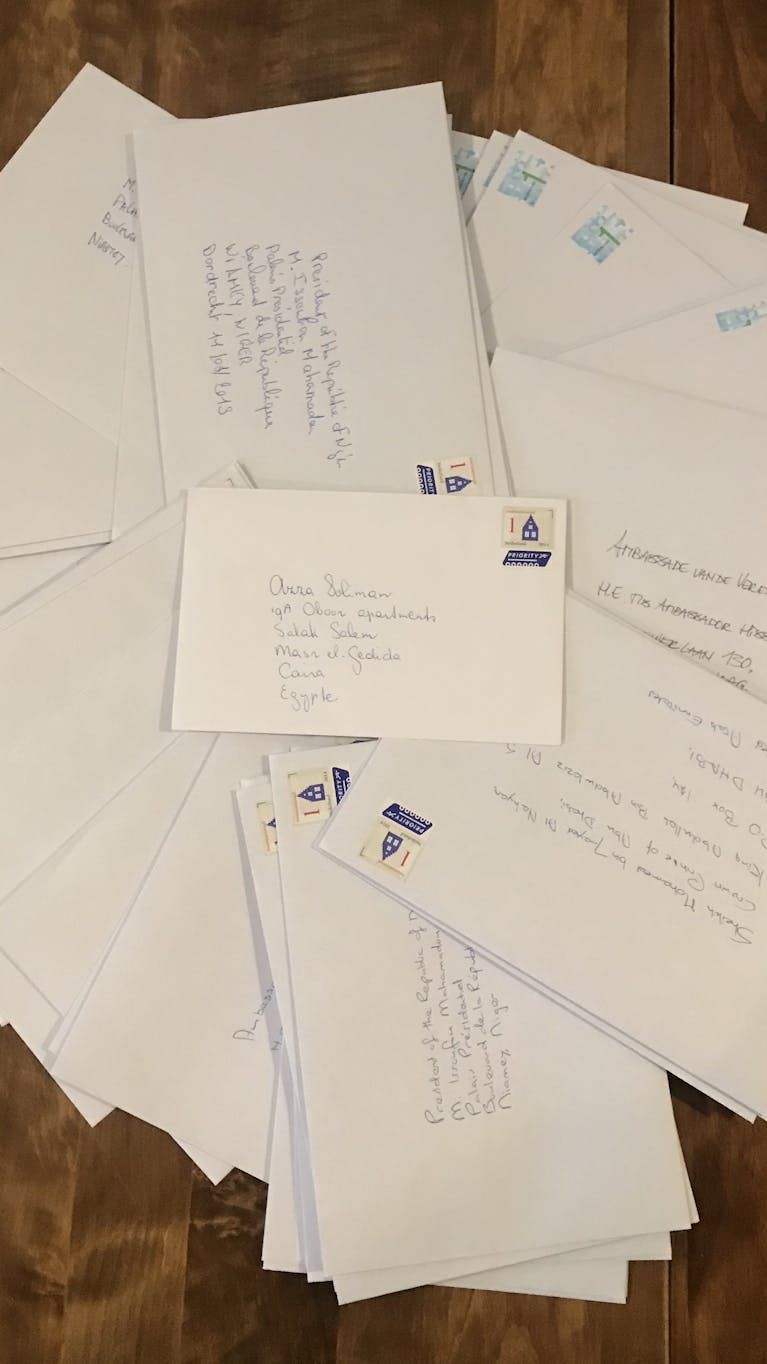 M.
Niamey.
President of the Republic of
M. Issoufou Mahamadou
Palais Présidentiel
Boulevard de la République
NIAMEY NIGER
Dordrecht 11/01/2019
1
1
1
1
Nederland
PRIORITY
Azza Soliman
Oboor apartments
Salah Salem
Masr el. Gedida
Caira
Egypte
AMBASSADE VAN DE
H.E. THIS AMBASSADOR
LAAN 130,
Sheikh Mohamed bin Zayed Al Nahyan
Crown Prince of Abu Dhabi,
King Abdullah Bin Abdulaziz Al S
Box 124,
DHABI,
Arab Emirates
1
PRIORITY
1
PRIORITY
Ambass
President of the Republic of N
M. Issoufou Mahamadou
Palais Présidentiel
Boulevard de la Républ
Niamey Niger